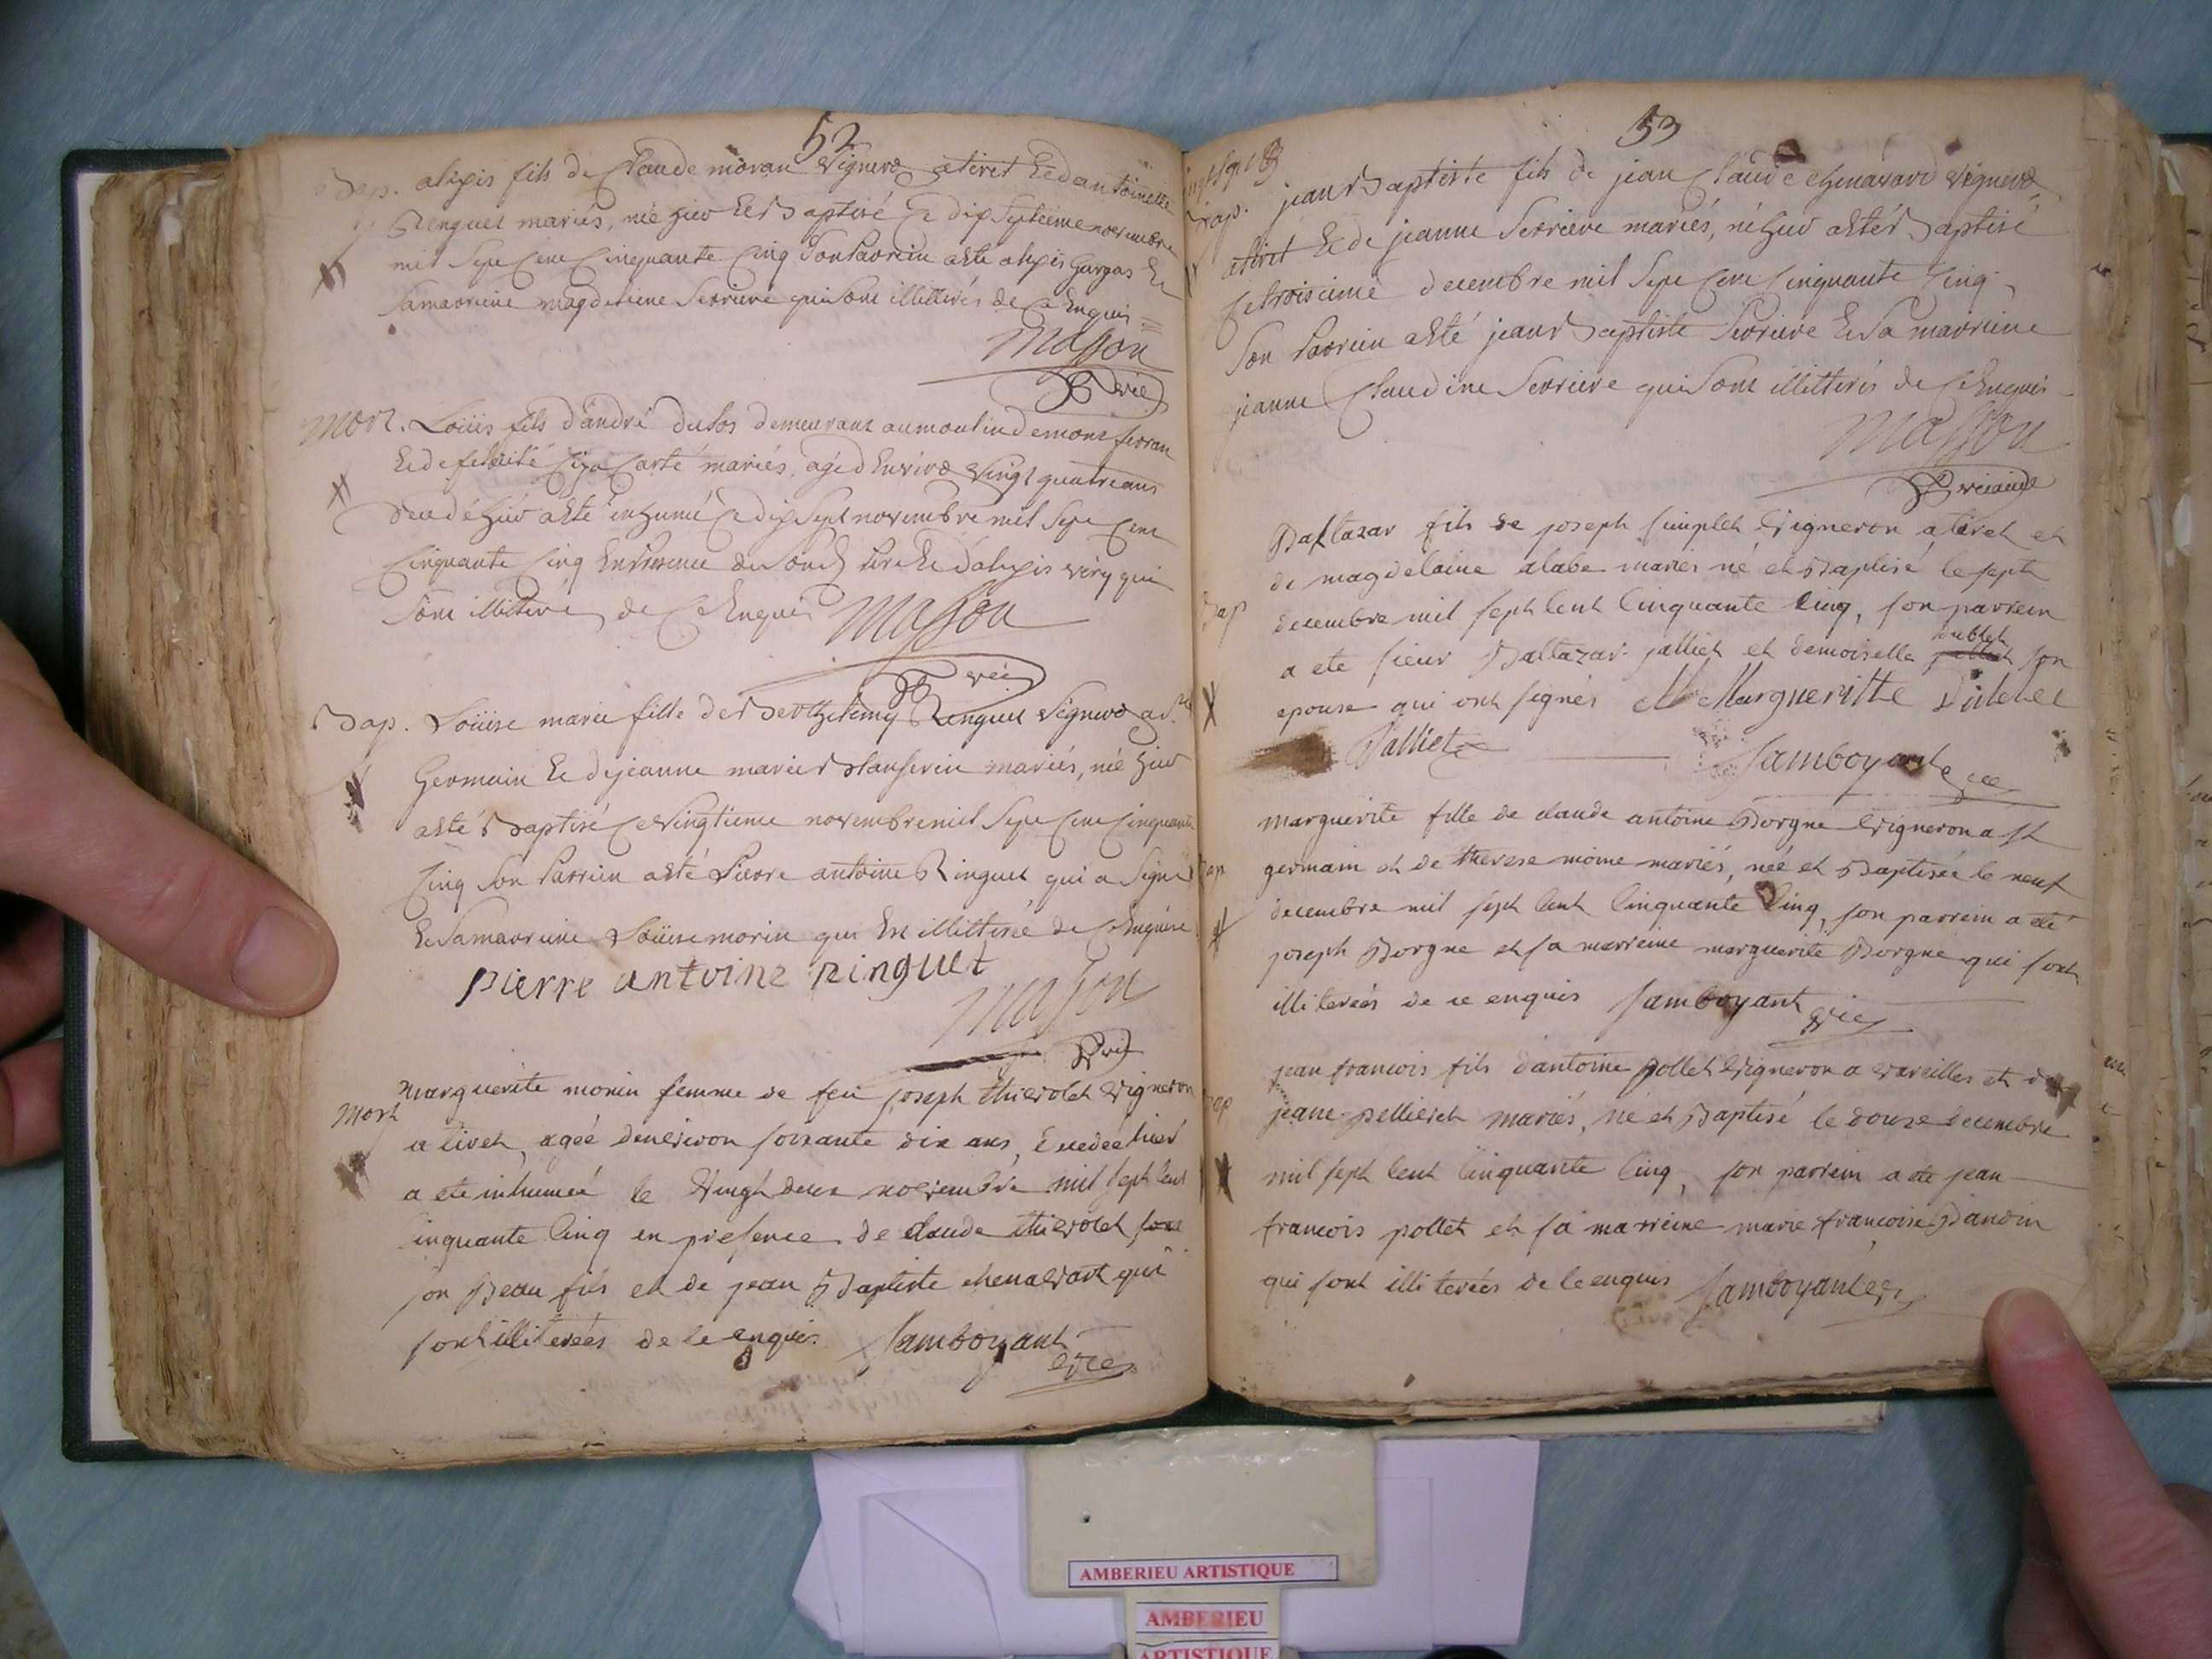 52
Bap. alexis fils de Claude moran Vigneron atiret Et dantoinette
Ringuet mariés, né hier Et Baptisé Ce dix septieme novembre
mil Sept Cent Cinquante Cinq Son Parrein aEté alexis Gurgas Et
Samarreine magdeleine Serriere qui Sont illitterés de Ce Enquis
Masson
Vic
Mort. Loüis fils d'andré dufos demeurant aumoulin demont ferran
Et de mariés, agé d'Environ Vingt quatre ans
decedé hier aEté inhumé Ce dix Sept novembre mil Sept Cent
Cinquante Cinq En Presence de Sond Pere Et d'alexis véry qui
Sont illitterés de Ce Enquis Masson
Vic
Bap. Loüise marie fille de Berthelemy Ringuet Vigneron a St
Germain Et de jeanne marie mariés, née hier
aEté Baptisé Ce Vingtieme novembre mil Sept Cent Cinquante
Cinq Son Parrein aEté Pierre antoine Ringuet qui a Signé
Et Samarreine Loüise morin qui Est illitterée de Ce Enquise
pierre antoine ringuet
Masson
Vic
Mort
marguerite monin femme de feu joseph thievolet Vigneron
a tiret, ageé denviron soixante dix ans, decedeé hier
a ete inhumeé le Vingt deux novembre mil sept cent
cinquante cinq en presence de claude thievolet
son Beau fils et de jean Baptiste chenavart qui
sont illitereés de ce enquis Jamboyant
vic
53
Bap. jean Baptiste fils de jean Claude chenavard Vigneron
atiret Et de jeanne Serriere mariés, né hier aEté Baptisé
Ce troisieme decembre mil Sept Cent Cinquante Cinq
Son Parrein aEté jean Baptiste Serriere Et Sa marreine
jeanne Claudine Serriere qui Sont illitterés de Ce Enquis
Masson
Vicaire
Baltazar fils de joseph simplet Vigneron a tiret et
de magdelaine alabe mariés né et Baptisé le sept
Bap
decembre mil sept cent cinquante cinq, son parrein
dublet
a ete sieur Baltazar jalliet et demoiselle son
epouse qui ont signés M Margueritte Dublet
Jalliet
Jamboyant vic
marguerite fille de claude antoine Borgne Vigneron a st
germain et de therese moine mariés, neé et Baptisée le neuf
Bap
decembre mil sept cent cinquante cinq, son parrein a été
joseph Borgne et sa marreine marguerite Borgne qui sont
illitereés de ce enquis Jamboyant vic
jean francois fils d'antoine pollet Vigneron a vareilles et de
Bap
jeane pellieret mariés, né et Baptisé le douze decembre
mil sept cent cinquante cinq, son parrein a ete jean
francois pollet et sa marreine marie francoise Dandin
qui sont illitereés de ce enquis Jamboyant vic
AMBERIEU ARTISTIQUE
AMBERIEU
ARTISTIQUE